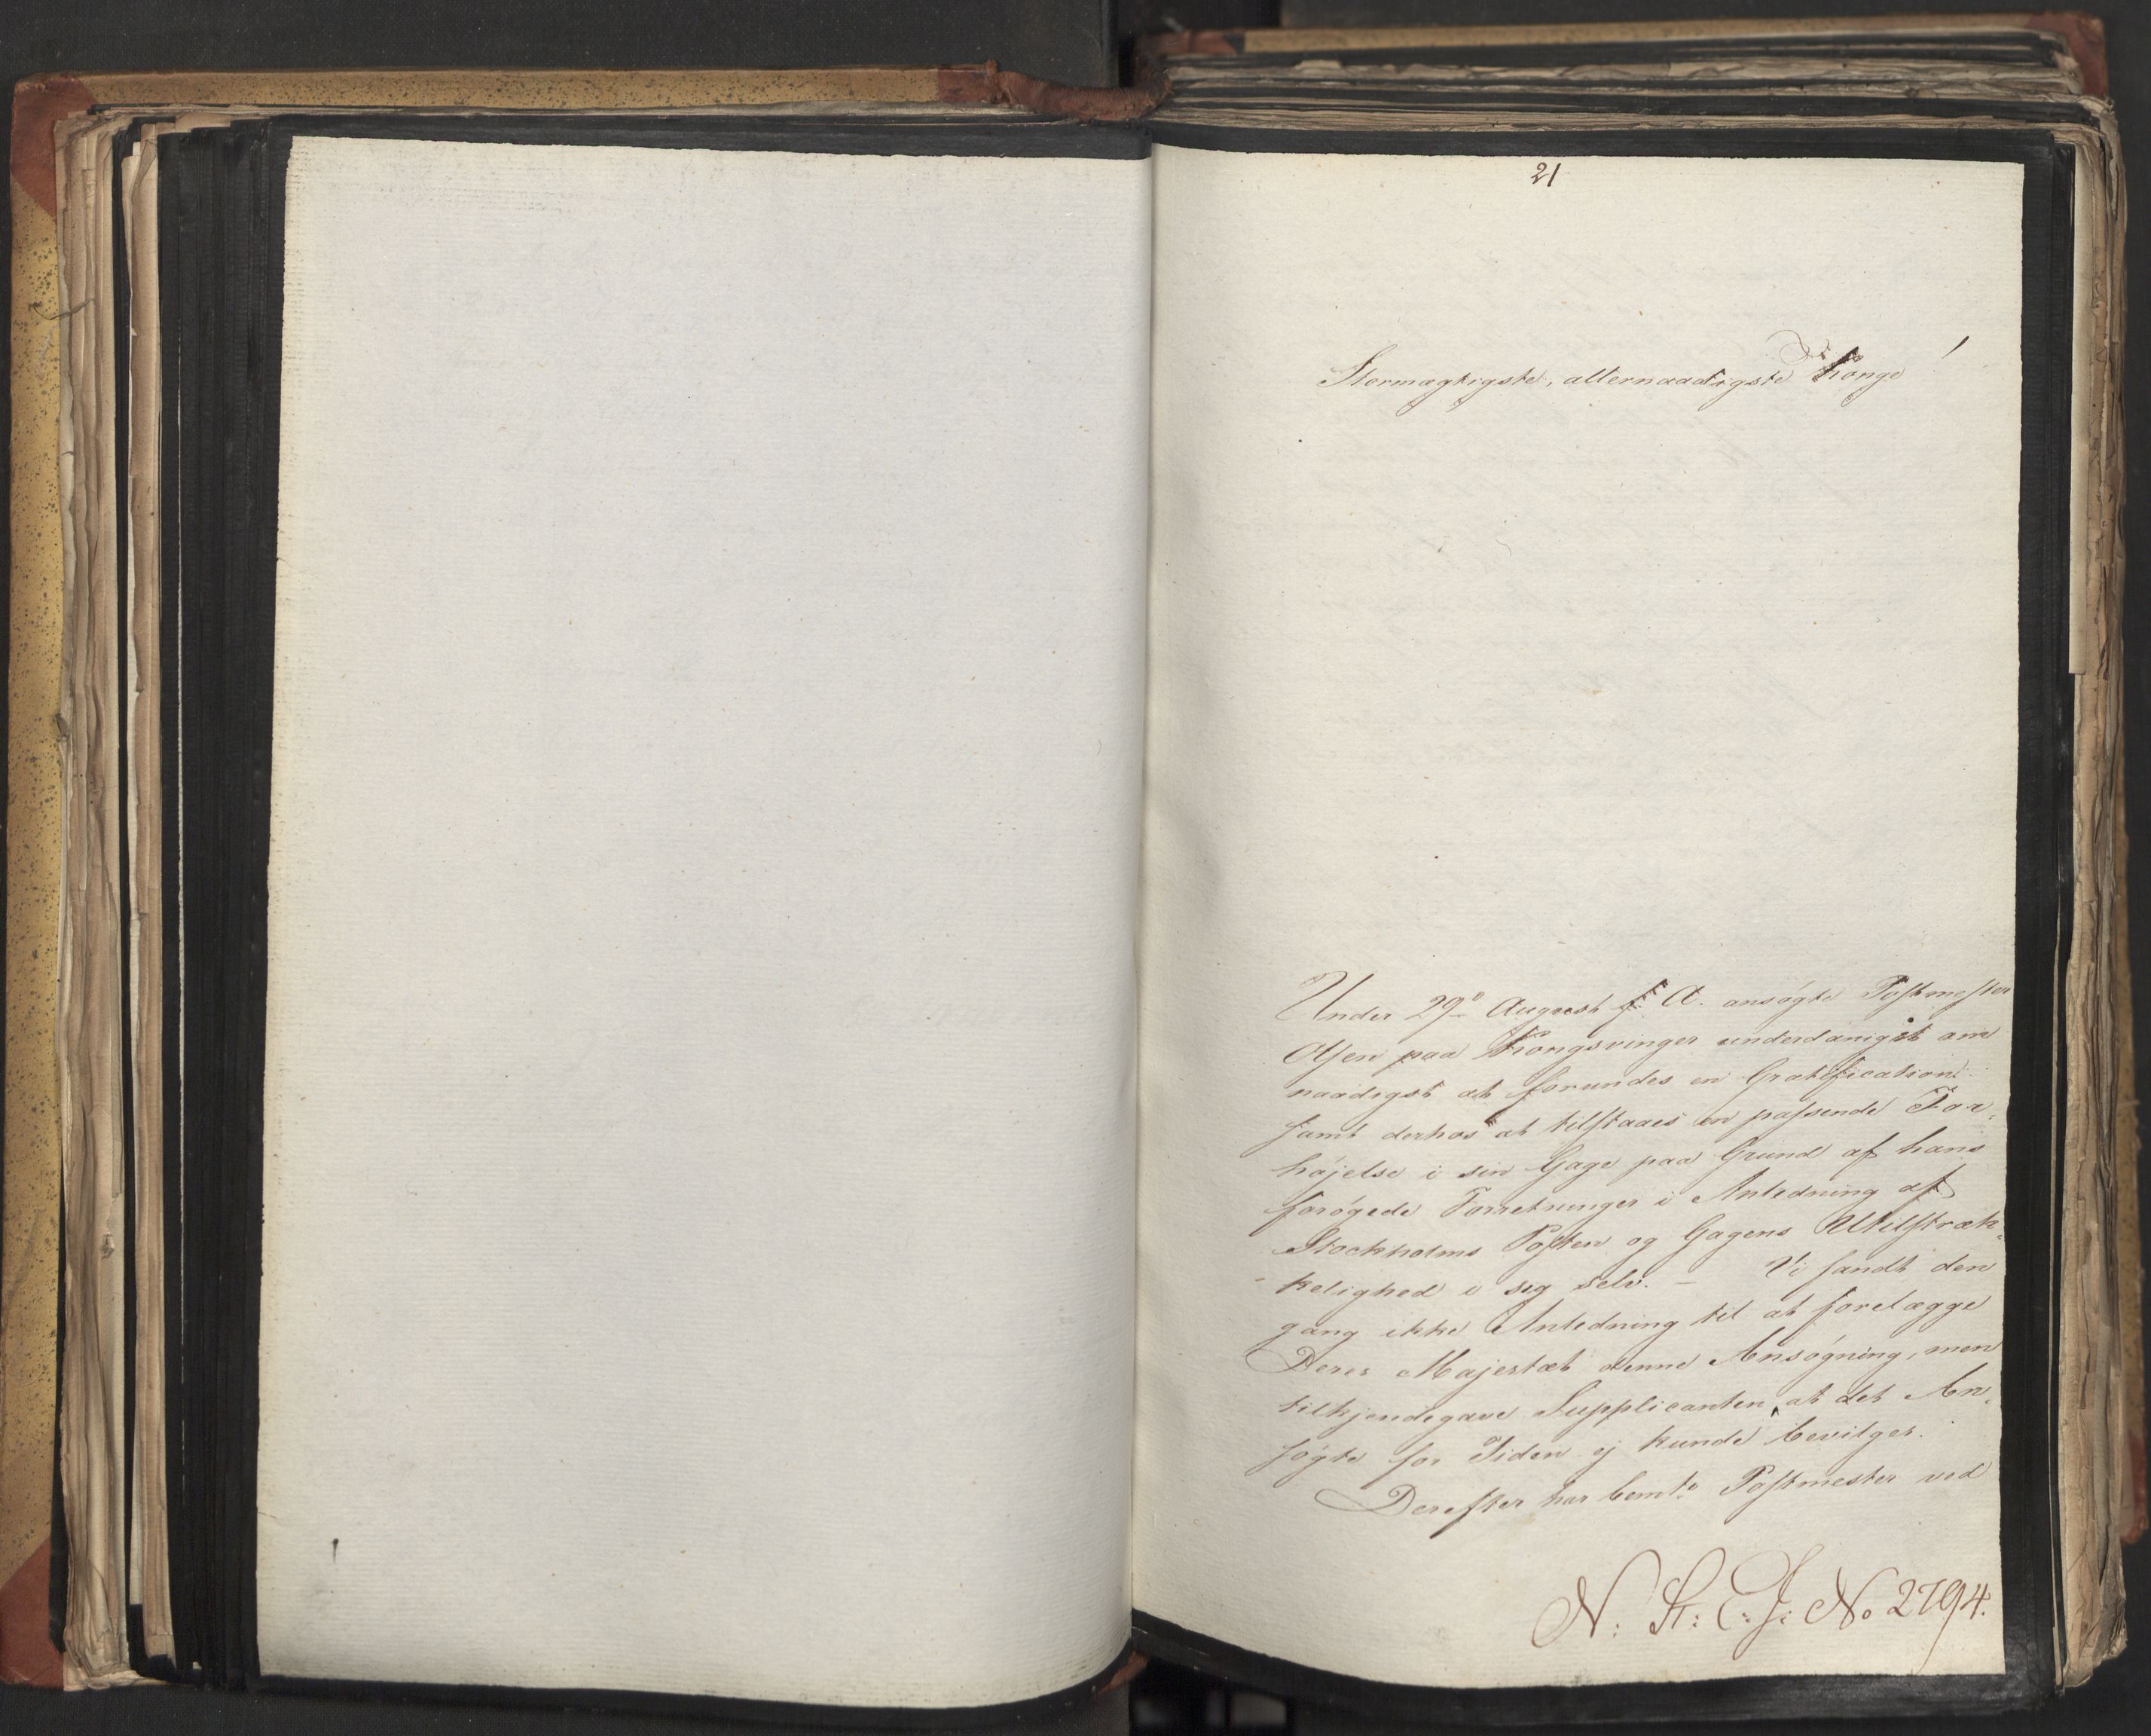 21
Stormægtigste, allernaadigste Konge!
Under 29de August f. A. ansøgte Postmester
Olsen paa Kongsvinger underdanigst om
naadigst at forundes en Gratification
samt derhos at tilstaaes en passende For-
højelse i sin Gage paa Grund af hans
forøgede Forretninger i Anledning af
Stockholms Posten og Gagens Utilstræk-
kelighed i sig selv. — Vi fandt den
gang ikke Anledning til at forelægge
Deres Majestæt denne Ansøgning, men
tilkjendegave Supplicanten, at det An-
søgte for Tiden ej kunde bevilges.
Derefter har bemte Postmester ved
N: St: C: J: No 2794.